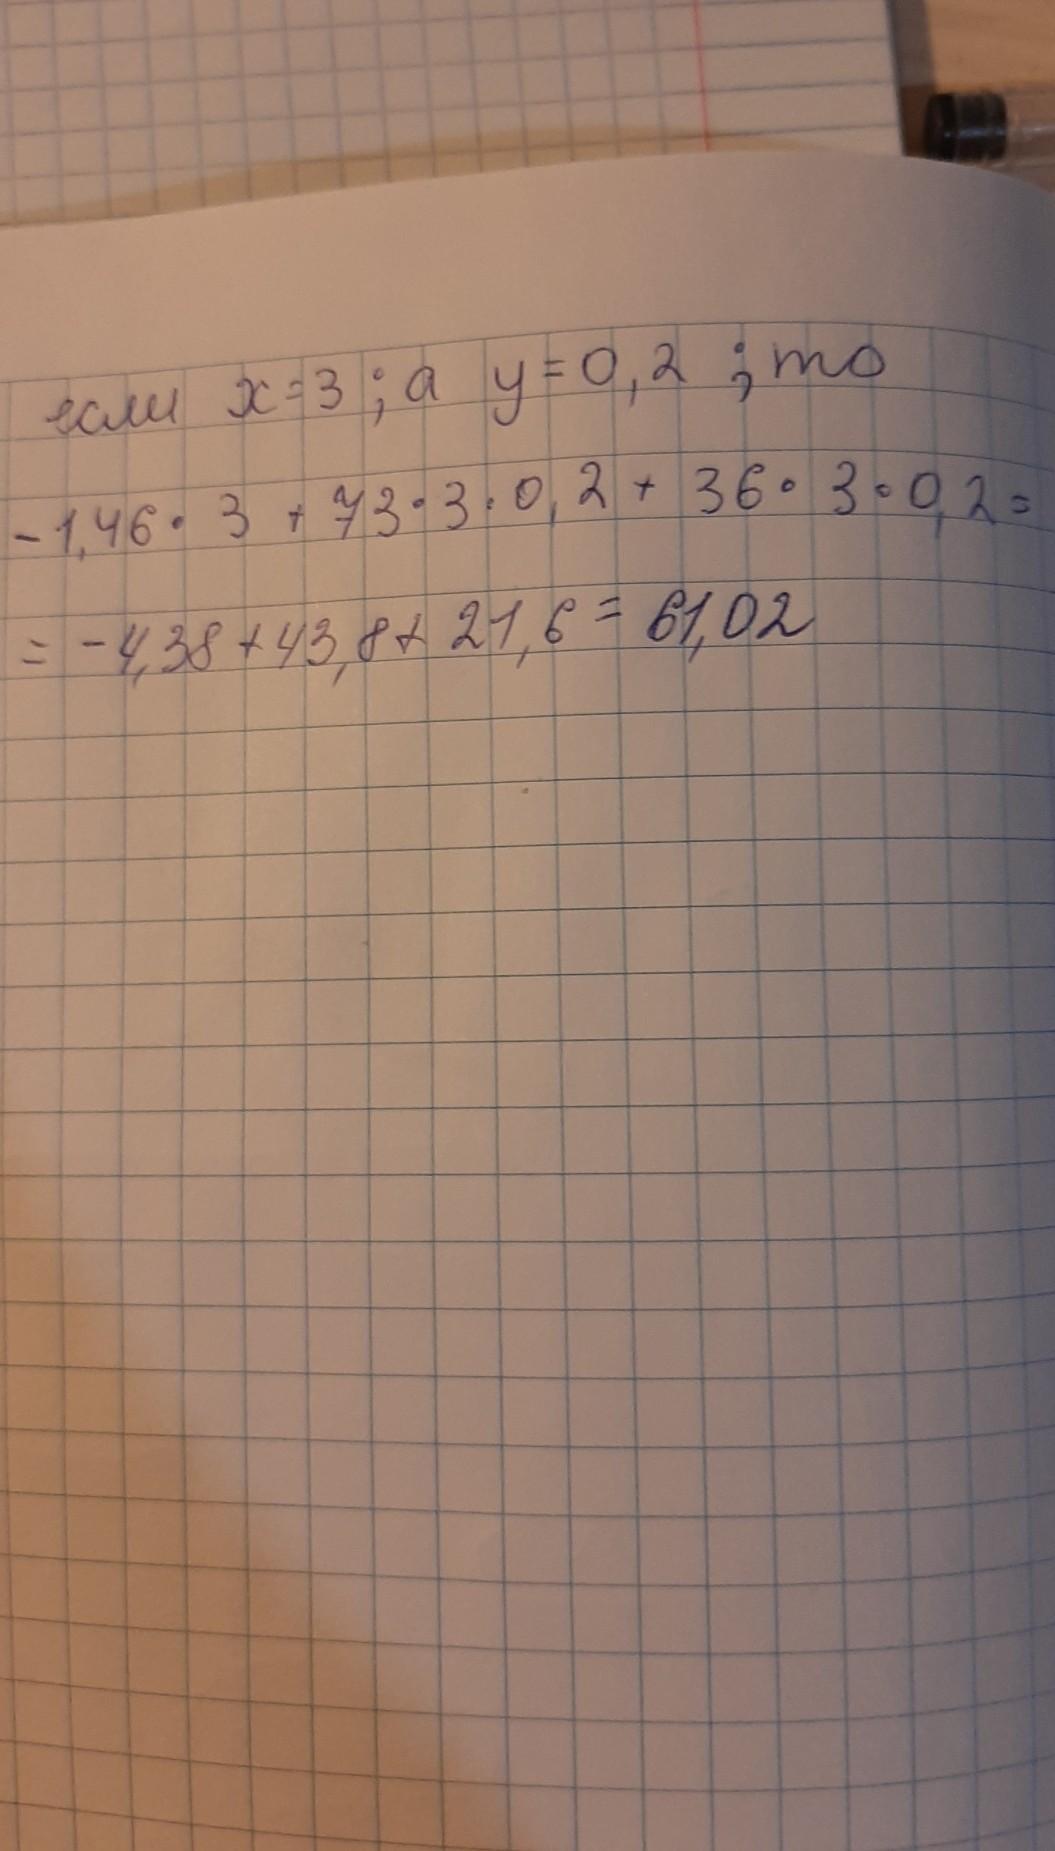 если x=3; а y=0,2; то
-1,46·3+73·3·0,2+36·3·0,2=
=-4,38+43,8+21,6=61,02